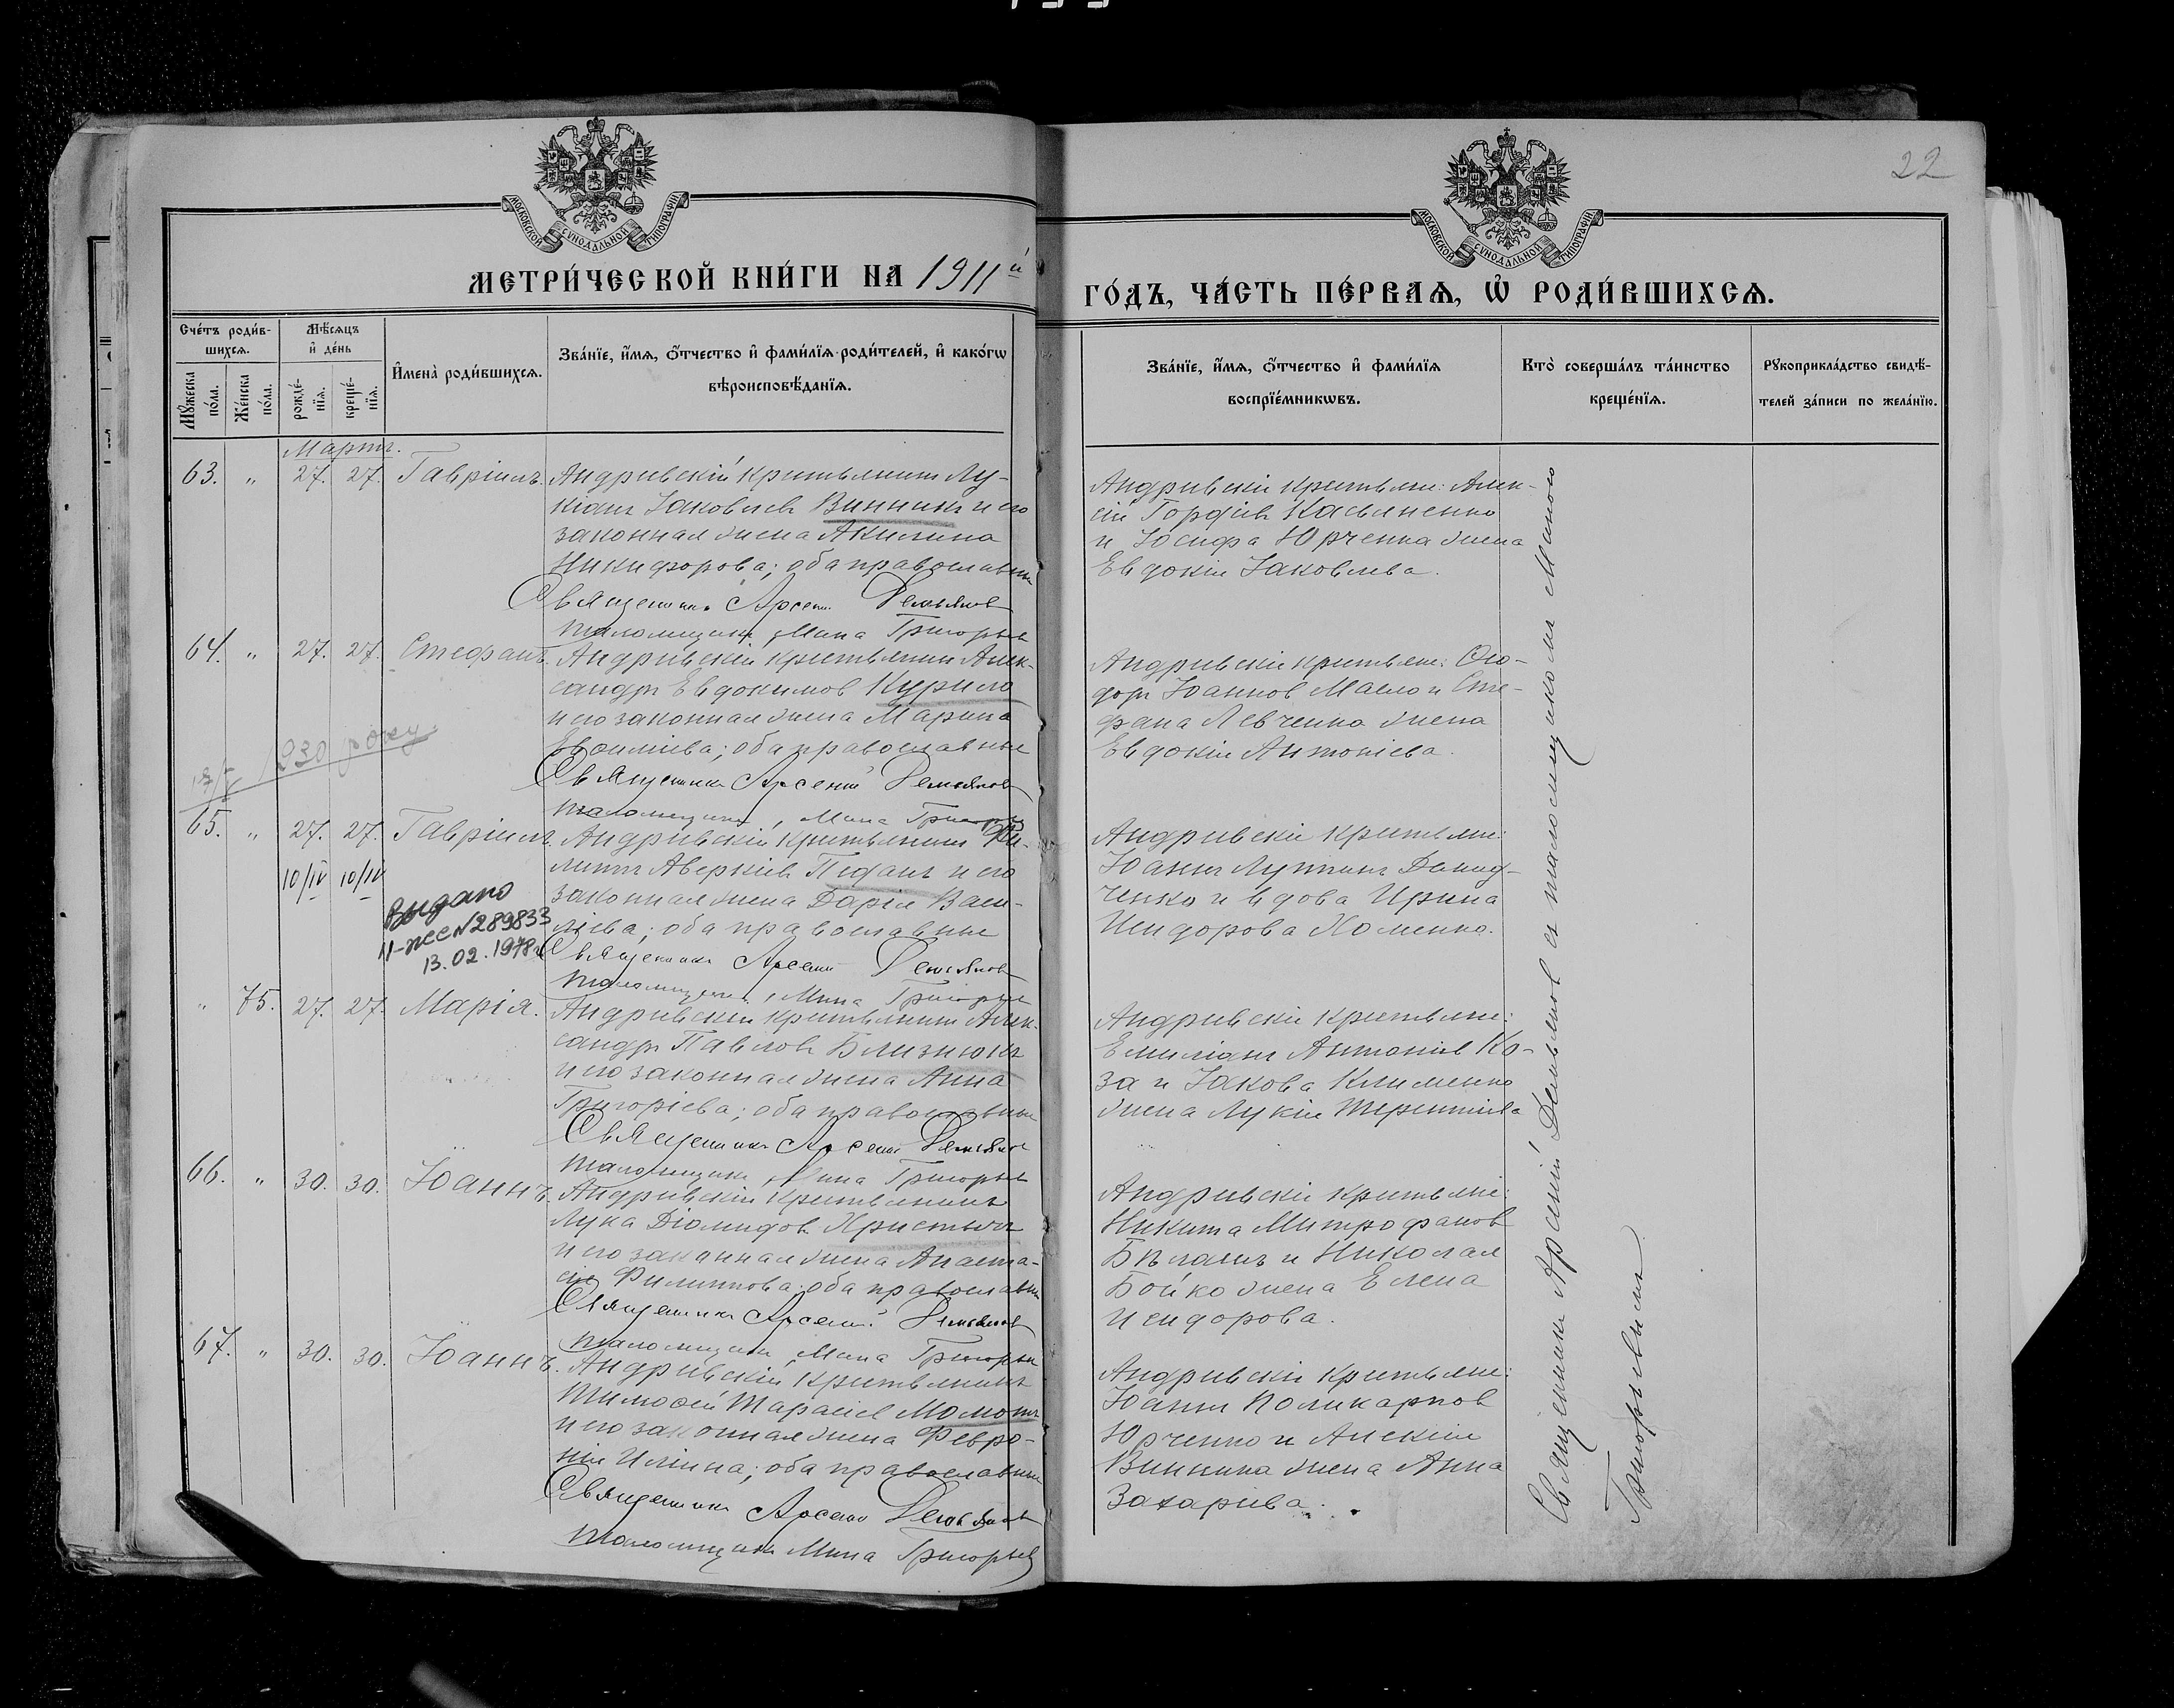 22
МОСКОВСКОЙ СѴНОДАЛЬНОЙ ТИПОГРАФІИ
МОСКОВСКОЙ СѴНОДАЛЬНОЙ ТИПОГРАФІИ
МЕТРИ́ЧЕСКОЙ КНИ́ГИ НА 1911й
ГО́ДЪ, ЧА́СТЬ ПЕ́РВАѦ, Ѡ҆ РОДИ́ВШИХСѦ.
Сче́тъ роди́в-
шихсѧ.
Мꙋ́жеска по́ла.
Же́нска по́ла.
Мѣ́сѧцъ и҆ де́нь
рожде́-
нїѧ.
креще́-
нїѧ.
И҆мена̀ роди́вшихсѧ.
Зва́нїе, и҆́мѧ, ѻ҆́тчество и҆ фами́лїѧ роди́телей, и҆ како́гѡ
вѣроисповѣ́данїѧ.
Зва́нїе, и҆́мѧ, ѻ҆́тчество и҆ фами́лїѧ
воспрїе́мникѡвъ.
Кто̀ соверша́лъ та́инство
креще́нїѧ.
Рꙋкоприкла́дство свидѣ́-
телей за́писи по жела́нїю.
Мартъ.
63. " 27. 27. Гавріилъ.
Андріевскій крестьянинъ Лу-
кіанъ Іаковлевъ Винникъ и его
законная жена Акилина
Никифорова; оба православные
Священникъ Арсеній Демьянов
Псаломщикъ Мина Григорьев
Андріевскіе крестьяне: Алек-
сій Гордіевъ Касьяненко
и Іосифа Юрченка жена
Евдокія Іаковлева.
64. " 27. 27. Стефанъ.
Андріевскій крестьянинъ Алек-
сандръ Евдокимов Курило
и его законная жена Марина
Евсиміева; оба православные
Священникъ Арсеній Демьянов
Псаломщикъ, Мина Григорьев
Андріевскіе крестьяне: Ѳео-
доръ Іоаннов Масло и Сте-
фана Левченка жена
Евдокія Антоніева.
1930 року
65. " 27. 27. Гавріилъ.
10/IV 10/IV
Выдано
II-жсс №289833
13.02.1978
Андріевскій крестьянинъ Фи-
липпъ Аверкіевъ Педанъ и его
законная жена Дарія Васи-
ліева; оба православные
Священникъ Арсеній Демьянов
Псаломщикъ, Мина Григорьев
Андріевскіе крестьяне:
Іоаннъ Лупинъ Давид-
ченко и вдова Ирина
Исидорова Хоменко.
" 75. 27. 27. Марія.
Андріевскій крестьянинъ Алек-
сандръ Павловъ Близнюкъ
и его законная жена Анна
Григоріева; оба православные
Священникъ Арсеній Демьянов
Псаломщикъ, Мина Григорьев
Андріевскіе крестьяне:
Емиліанъ Антоніев Ко-
за и Іакова Клименко
жена Лукія Терентіева
66. " 30. 30. Іоаннъ.
Андріевскій крестьянинъ
Лука Діомидов Христичъ
и его законная жена Анаста-
сія Филиппова; оба православные
Священникъ Арсеній Демьянов
Псаломщикъ, Мина Григорьев
Андріевскіе крестьяне:
Никита Митрофанов
Бѣлашъ и Николая
Бойко жена Елена
Исидорова.
67. " 30. 30. Іоаннъ.
Андріевскій крестьянинъ
Тимоѳей Тарасіев Момотъ
и его законная жена Февро-
нія Иліина; оба православные
Священникъ Арсеній Демьянов
Псаломщикъ Мина Григорьев
Андріевскіе крестьяне:
Іоаннъ Поликарпов
Юрченко и Алексія
Винника жена Анна
Захаріева.
Священникъ Арсеній Демьянов съ псаломщикомъ Миною
Григорьевымъ